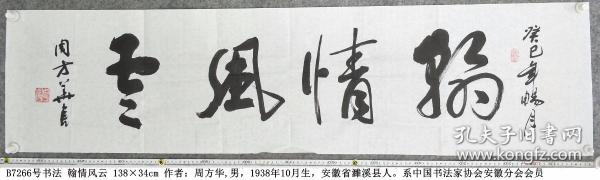 癸巳年畅月
翰情风云
周方华书
孔夫子旧书网
www.kongfz.com
B7266号书法 翰情风云 138×34cm 作者：周方华,男，1938年10月生，安徽省濉溪县人。系中国书法家协会安徽分会会员